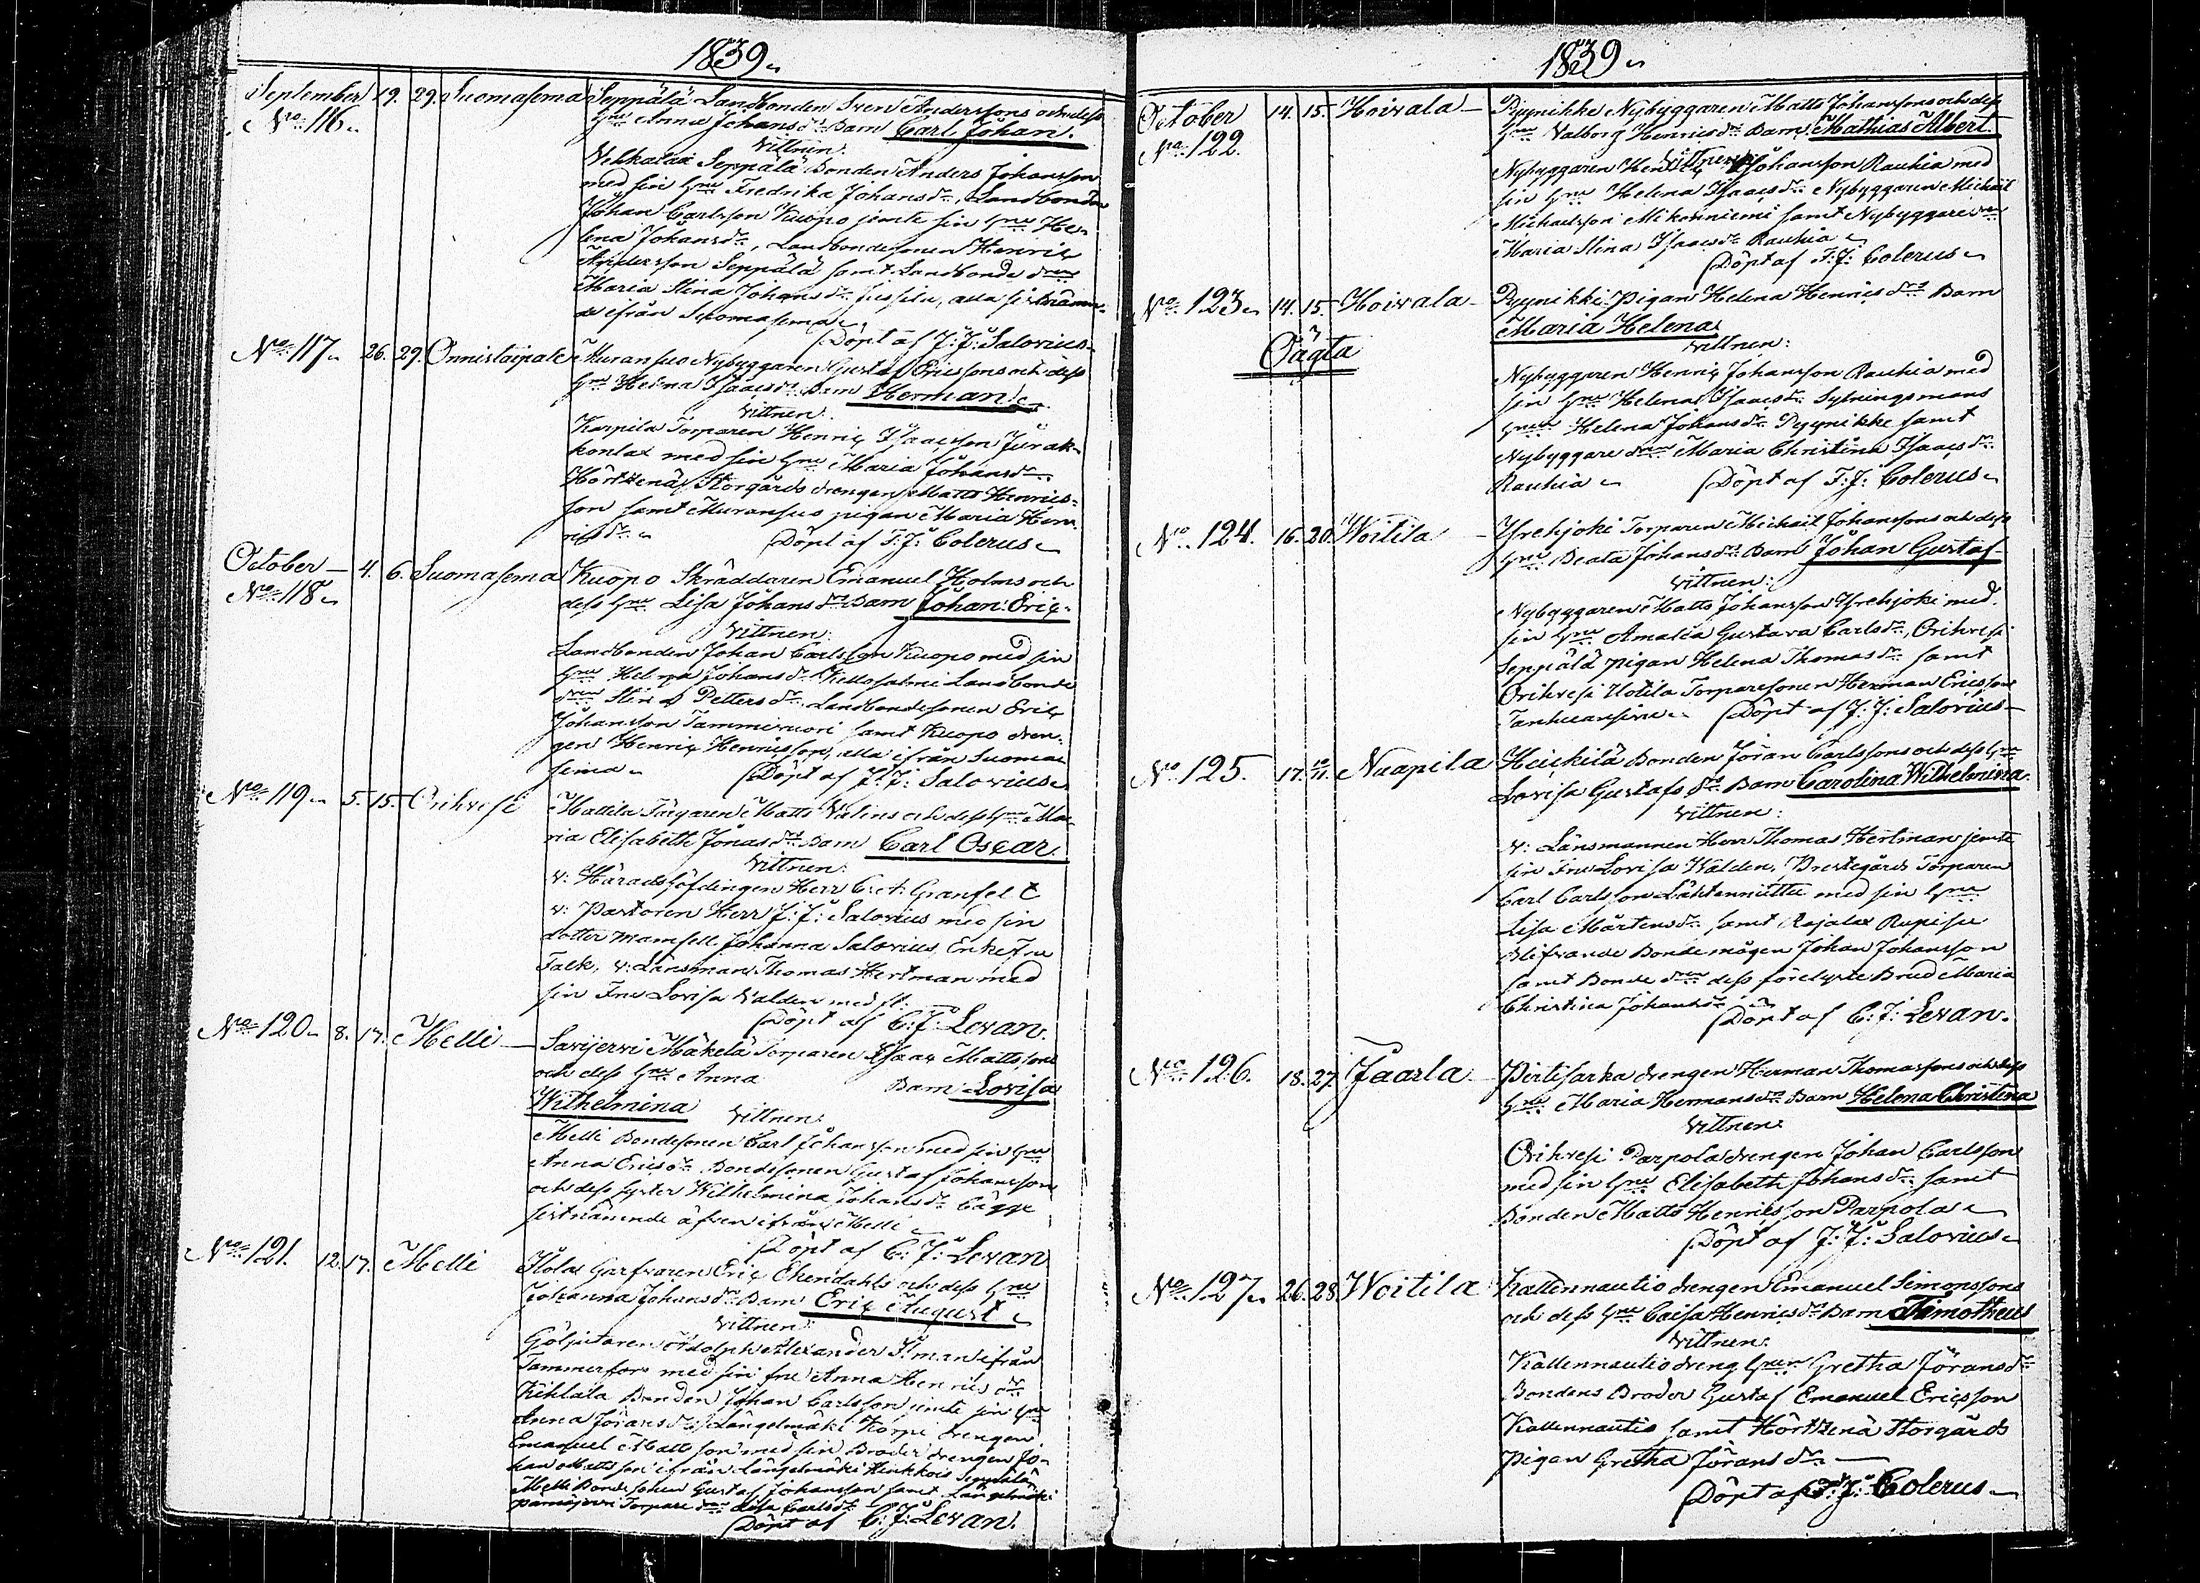 1839
September 19. 29. Suomasema Seppälä Landbonden Sven Anderssons och dess
No 116 Hru Anna Johansdr Barn Carl Johan.
Vittnen:
Vehkalax Seppälä Bonden Anders Johansson
med sin Hru Fredrika Johansdr, Landbonden
Johan Carlsson Kuopo jemte sin Hru He-
lena Johansdr, Landbondesonen Henric
Andersson Seppälä samt Landbonde dren
Maria Stina Johansdr Jussila, alla sistnämn-
de ifrån Suomasema
Döpt af J: J: Salovius
No 117 26. 29. Onnistaipale Muransuo Nybyggaren Gustaf Ericssons och dess
Hru Helena Isaacsdr Barn Herman
Vittnen:
Karpila Torparen Henric Isaacsson Jurak-
konlax med sin Hru Maria Johansdr
Hörtzenä Storgårds drengen Matts Henrics-
son samt Muransuo pigan Maria Hen-
ricsdr
Döpt af F: J: Colerus
October 4. 6. Suomasema Kuopo Skräddaren Emanuel Holms och
No 118 dess Hru Lisa Johansdr Barn Johan Eric
Vittnen:
Landbonden Johan Carlsson Kuopo med sin
Hru Helena Johansdr Landbonde
dren Stina Pettersdr Landbondesonen Eric
Johansson Tamminiemi samt Kuopo dren-
gen Henric Henricsson, alla ifrån Suoma-
sema
Döpt af J: J: Salovius
No 119 5. 15. Orihvesi Hattila Färgaren Matts Valins och dess Hru Ma-
ria Elisabeth Jonasdr Barn Carl Oscar.
Vittnen:
v: Häradshöfdingen Herr Granfelt
v: Pastoren Herr J: J: Salovius med sin
dotter Mamsell Johanna Salovius, Enkefru
Falk, v: Länsman Thomas Hertman med
sin Fru Lovisa Walden med fl.
Döpt af C: J: Levan.
No 120 8. 17. Melli Savijervi Mäkelä Torparen Isaac Mattssons
och dess Hru Anna Barn Lovisa
Wilhelmina
Vittnen:
Melli Bondesonen Carl Johansson med sin Hru
Anna Ericsdr Bondesonen Gustaf Johansson
och dess syster Wilhelmina Johansdr bägge
sistnämnde äfven ifrån Melli
Döpt af C: J: Levan
No 121. 12. 17. Melli Garfvaren Eric Ekendahls och dess Hru
Johanna Johansdr Barn Eric August
Vittnen:
Göljutaren Adolph Alexander ifrån
Tammerfors med sin fru Anna Henricsdr
Bonden Johan Carlsson jemte sin Hru
Anna Göransdr Längelmäki Korpi drengen
Emanuel Mattsson med sin Broder drengen Jo-
han Mattsson ifrån Längelmäki Seppälä
Melli Bondesonen Gustaf Johansson samt Längelmäki
Torpare dren Lisa Carlsdr
Döpt af C: J: Levan.
1839
October 14. 15. Hoivala Pyynikke Nybyggaren Matts Johanssons och dess
No 122. Hru Valborg Henricsdr Barn Mathias Albert
Vittnen
Nybyggaren Henric Johansson Rauhia med
sin Hru Helena Isaacsdr Nybyggaren Michael
Michaelsson Mikonniemi samt Nybyggare dren
Maria Stina Isaacsdr Rauhia
Döpt af F: J: Colerus
No 123 14. 15. Hoivala Pyynikki Pigan Helena Henricsdrs Barn
Oägta Maria Helena
Vittnen:
Nybyggaren Henric Johansson Rauhia med
sin Hru Helena Isaacsdr Sytningsmans
Hrun Helena Johansdr Pyynikke samt
Nybyggare dren Maria Christina Isaacsdr
Rauhia Döpt af F: J: Colerus
No 124. 16. 20. Woitila Yrehjoki Torparen Michael Johanssons och dess
Hru Beata Johansdr Barn Johan Gustaf
Vittnen:
Nybyggaren Matts Johansson Yrehjoki med
sin Hru Amalia Gustava Carlsdr, Orihvesi
Seppälä pigan Helena Thomasdr samt
Orihvesi Uotila Torparesonen Herman Ericsson
Döpt af J: J: Salovius
No 125. 17. Naapila Heickilä Bonden Jöran Carlssons och dess Hru
Lovisa Gustafsdr Barn Carolina Wilhelmina.
Vittnen:
v: Länsmannen Herr Thomas Hertman jemte
sin Fru Lovisa Walden, Prestegårds Torparen
Carl Carlsson med sin Hru
Lisa Mårtensdr, samt Rajalax Rapisu
Blifvande Bondemågen Johan Johansson
samt Bonde dren dess förelyste Brud Maria
Christina Johansdr
Döpt af C: J: Levan.
No 126. 18. 27. Jäärla Pirtisarka drengen Herman Thomassons och dess
Hru Maria Hermansdr Barn Helena Christina
Vittnen
Orihvesi Parpola drengen Johan Carlsson
med sin Hru Elisabeth Johansdr samt
Bonden Matts Henricsson Parpola
Döpt af J: J: Salovius
No 127 26. 28. Woitila Kallennautio drengen Emanuel Simonssons
och dess Hru Caisa Henricsdr Barn Timotheus
Vittnen:
Kallennautio dreng Hrun Gretha Jöransdr
Bondens Broder Gustaf Emanuel Ericsson
Kallennautio samt Hörtzenä Storgårds
Pigan Gretha Jöransdr
Döpt af F: J: Colerus